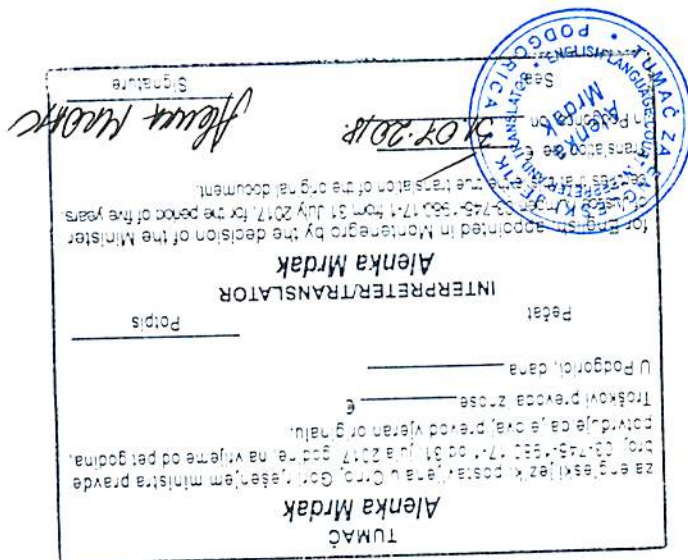 TUMAČ
Alenka Mrdak
za engleski jezik postavljena u Crnoj Gori rješenjem ministra pravde
broj 03-745- 17-1 od 31 jula 2017 godine, na vrijeme od pet godina,
potvrđuje da je ovaj prevod vjeran originalu.
Troškovi prevoda iznose €
U Podgorici, dana
Pečat Potpis
INTERPRETER/TRANSLATOR
Alenka Mrdak
for English appointed in Montenegro by the decision of the Minister
of Justice 17-1 from 31 July 2017, for the period of five years,
certifies that true translation of the original document.
Translation fee €
In Podgorica on 31.07.2018.
Seal Signature
Alenka Mrdak
TUMAČ ZA ENGLESKI JEZIK • PODGORICA •
ENGLISH LANGUAGE COURT INTERPRETER AND TRANSLATOR
Alenka
Mrdak